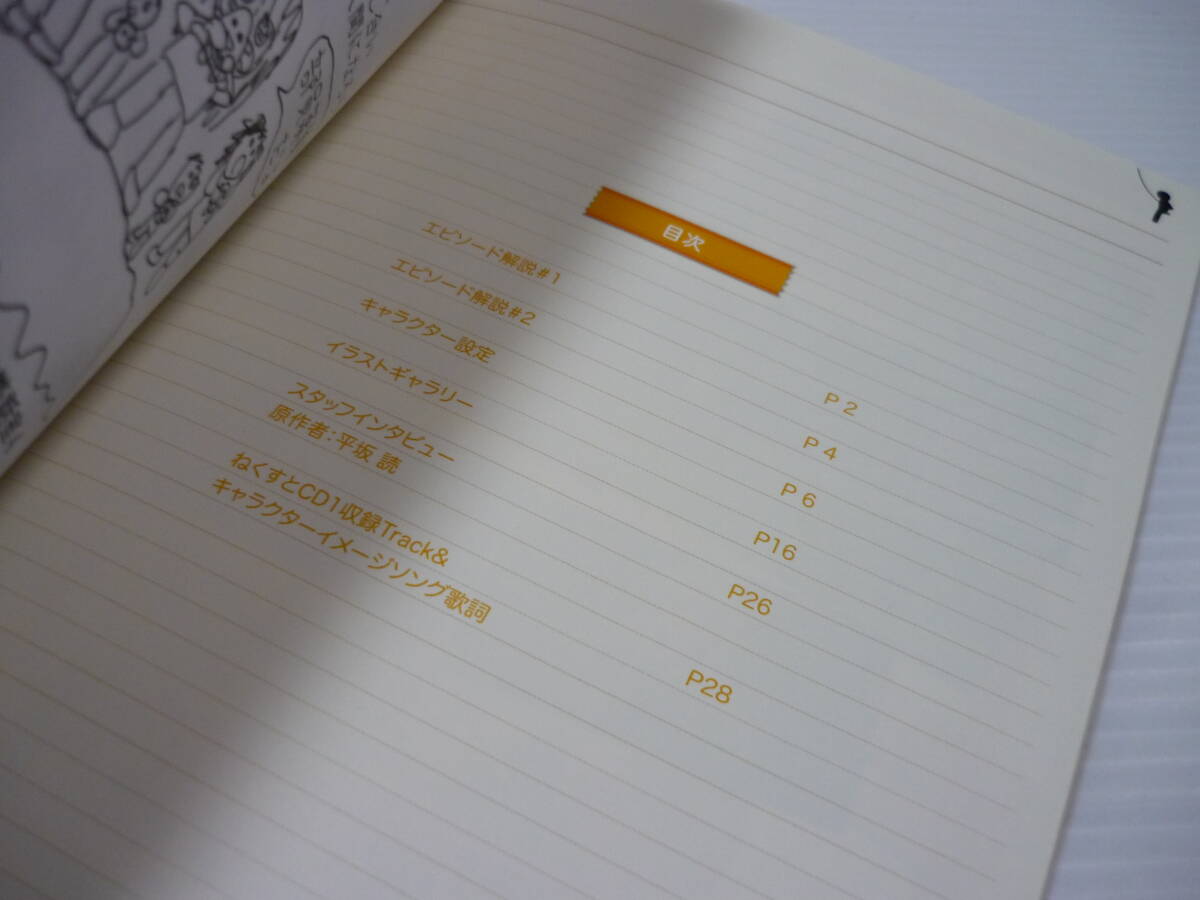 目次
エピソード解説#1 P 2
エピソード解説#2 P 4
キャラクター設定 P 6
イラストギャラリー P16
スタッフインタビュー
原作者:平坂 読 P26
ねくすとCD1収録Track&
キャラクターイメージソング歌詞 P28